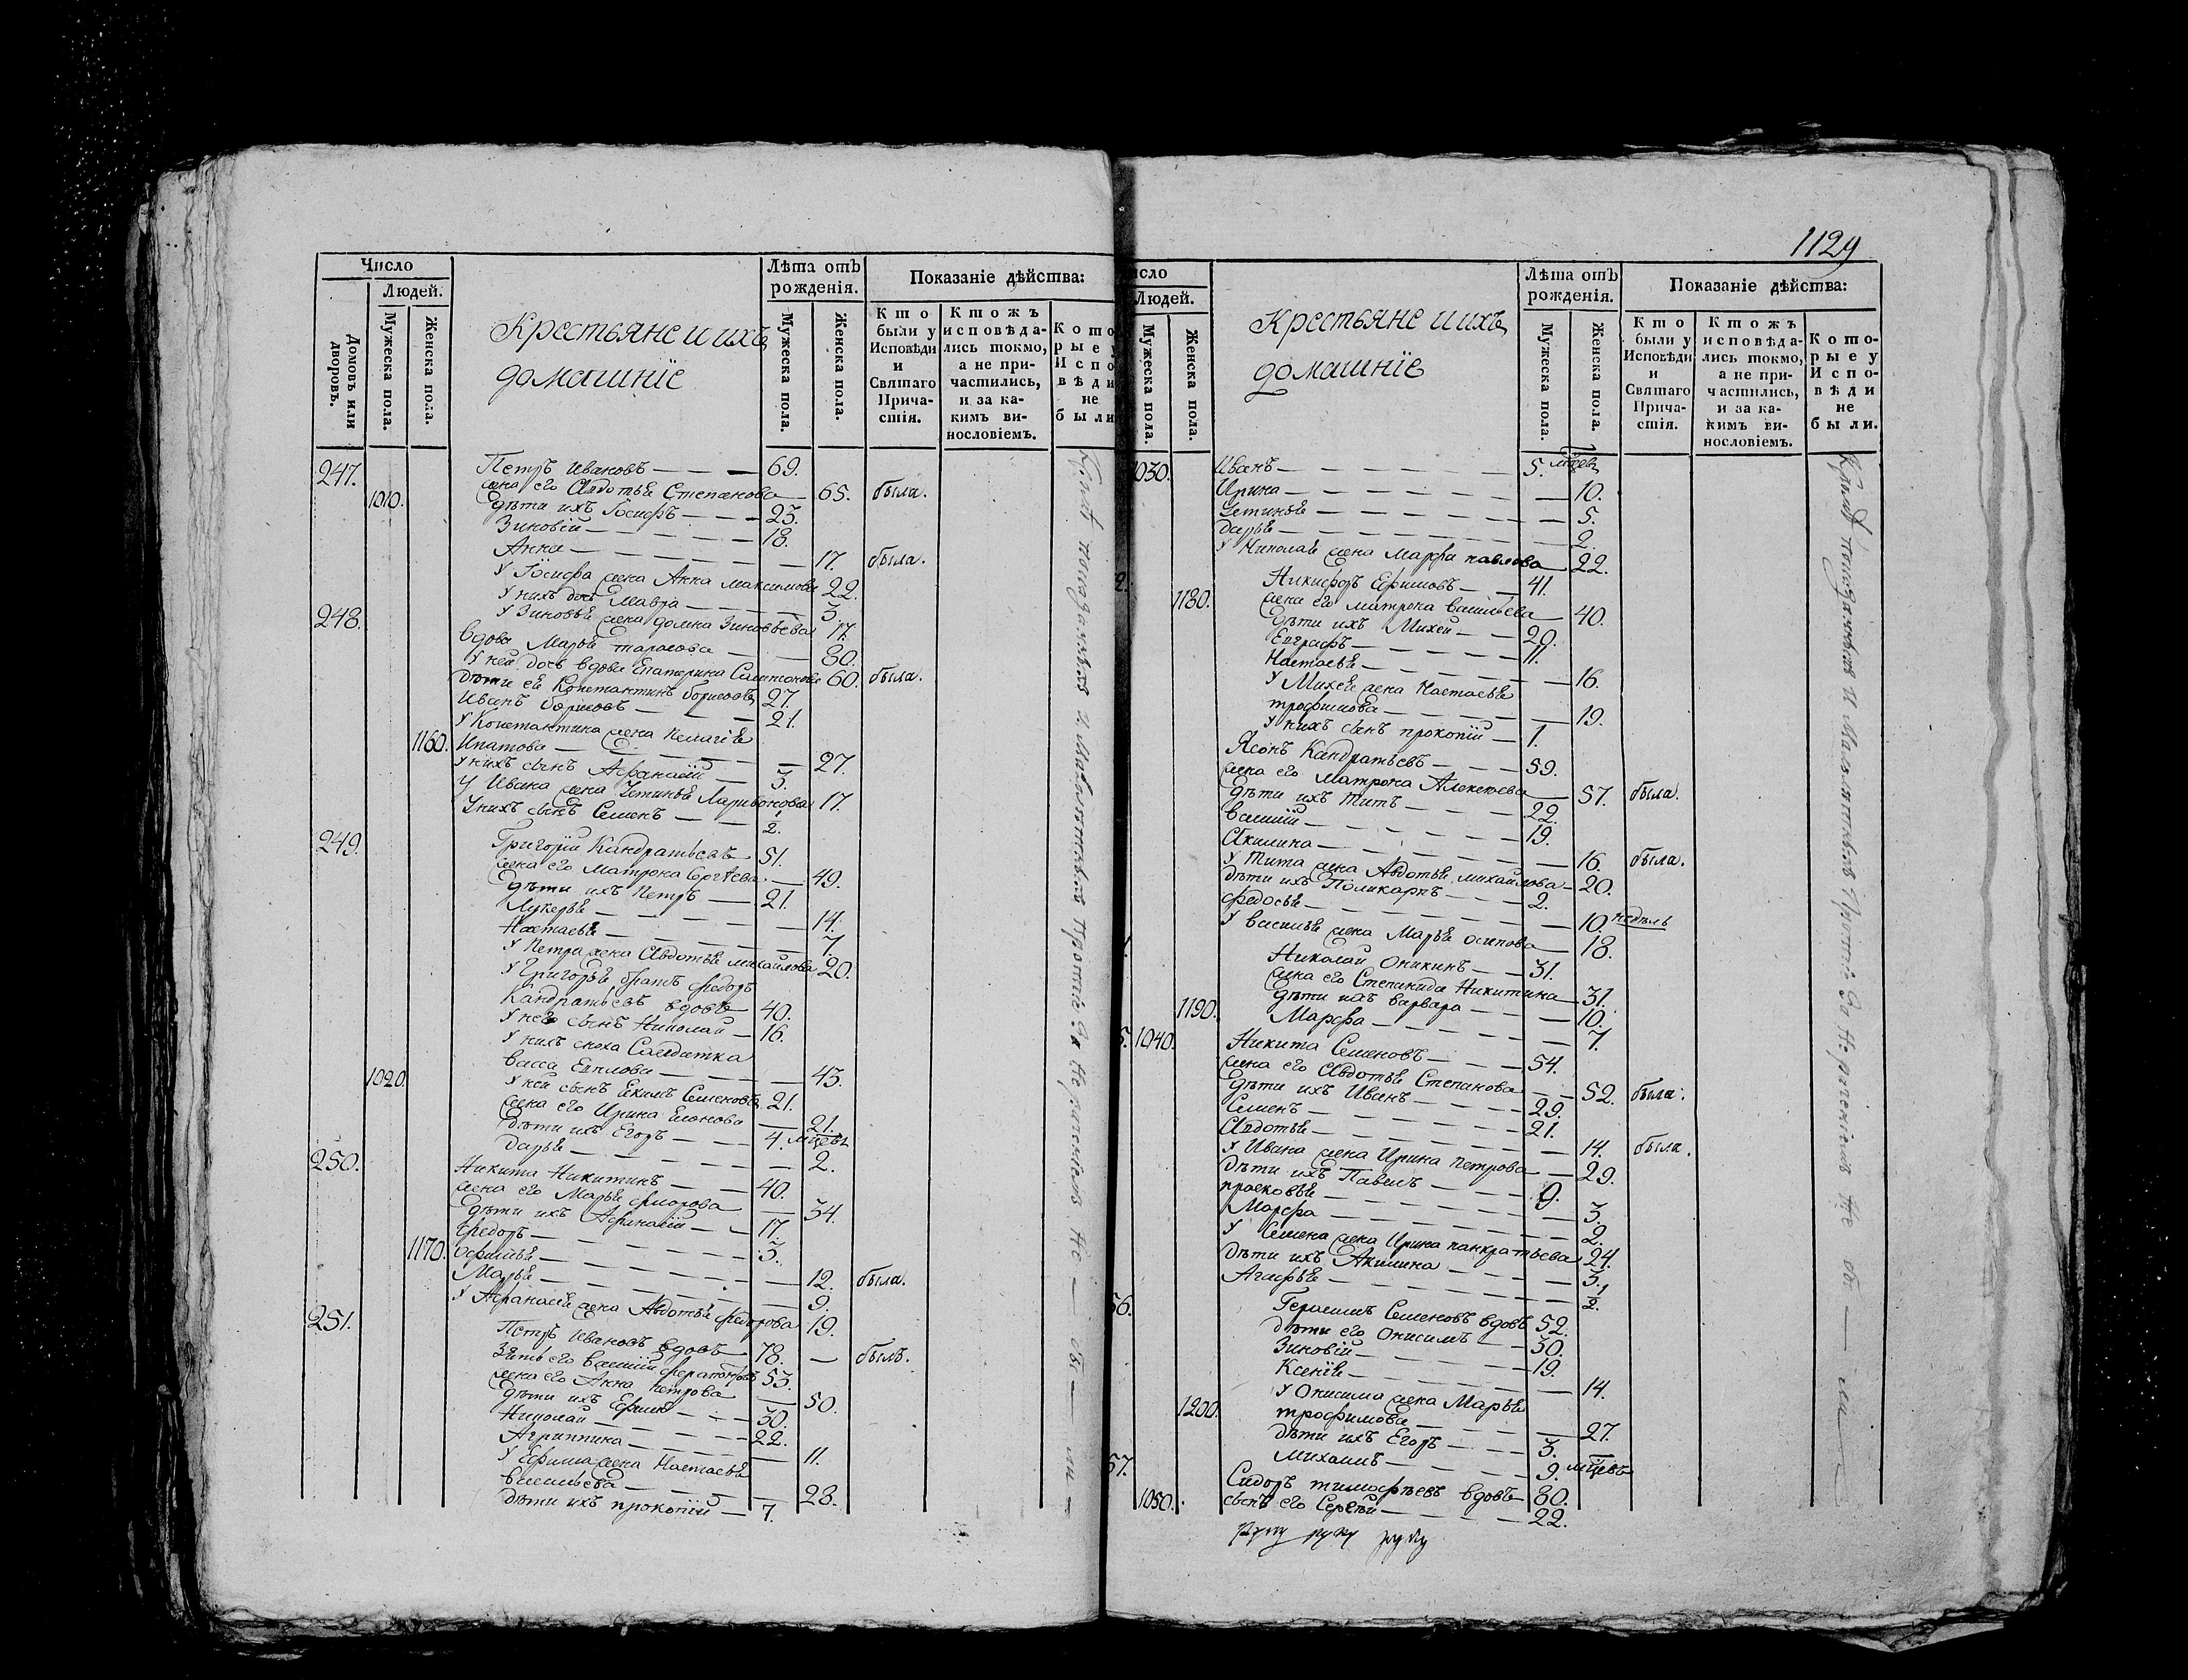 Число
Людей.
Домовъ или дворовъ.
Мужеска пола.
Женска пола.
Крестьяне и ихъ
домашніе
Лѣта отъ рожденія.
Мужеска пола.
Женска пола.
Показаніе дѣйства:
Кто были у Исповѣди и Святаго Прича-стія.
Ктожъ исповѣда-лись токмо, а не при-частились, и за ка-кимъ ви-нословіемъ.
Кото рые у Испо вѣди не были
247. Петръ Ивановъ — 69.
1010. жена его Авдотья Степанова — 65. была.
дѣти ихъ Іосифъ — 23.
Зиновій — 18.
Анна — 17. была.
У Іосифа жена Анна Максимова 22.
У нихъ дочь Мавра — 3.
У Зиновья жена домна Зиновьева 17.
248. вдова Марья тарасова — 80.
У ней дочь вдова Екатерина Самсонова 60. была.
дѣти ея Константинъ борисовъ 27.
Иванъ борисовъ — 21.
У Константина жена Пелагія
1160. Ипатова — 27.
У нихъ сынъ Афанасій — 3.
У Ивана жена Устинья Ларивонова 17.
У нихъ сынъ Семенъ — 1/2.
249. Григорій Кандратьевъ 51.
жена его Матрона Сергѣева — 49.
дѣти ихъ Петръ — 21.
Лукерья — 14.
Настасья — 7.
У Петра жена Авдотья михайлова 20.
У Григорья братъ федоръ
Кандратьевъ вдовъ — 40.
У него сынъ Николай — 16.
У нихъ сноха Салдатка
Васса — 43.
1020. У ней сынъ Екимъ Семеновъ 21.
жена его Ирина — 21.
дѣти ихъ Егоръ — 4. мцовъ
дарья — 2.
250. Никита Никитинъ — 40.
жена его Марья — 34.
дѣти ихъ Афанасій — 17.
федоръ — 3.
1170. офимья — 12. была.
Марья — 9.
У Афанасья жена Авдотья федорова 19.
251. Петръ Ивановъ вдовъ — 78. — былъ.
Зять его василій 53.
жена его Анна Петрова — 50.
дѣти ихъ Ефимъ — 30.
Николай — 22.
Агриппина — 11.
У Ефима жена Настасья
васильева — 28.
дѣти ихъ прокопій — 7.
1129
исло
Людей.
Мужеска пола.
Женска пола.
Крестьяне и ихъ
домашніе
Лѣта отъ рожденія.
Мужеска пола.
Женска пола.
Показаніе дѣйства:
Кто были у Исповѣди и Святаго Прича-стія.
Ктожъ исповѣда-лись токмо, а не при-частились, и за ка-кимъ ви-нословіемъ.
Кото-рые у Испо-вѣди не были.
1030. Иванъ — 5. мцев
Ирина — 10.
Устинья — 5.
дарья — 2.
У Николая жена Марфа павлова — 22.
2. Никифоръ Ефимовъ — 41.
1180. жена его матрона васильева — 40.
дѣти ихъ Михей — 20.
Евграфъ — 11.
Настасья — 16.
У Михея жена Настасья
трофимова — 19.
У нихъ сынъ прокопій — 1.
Ясонъ Кандратьевъ — 59.
жена его Матрона Алексѣева — 57. была.
дѣти ихъ Титъ — 22.
василій — 19.
Акилина — 16. была.
У Тита жена Авдотья михайлова — 20.
дѣти ихъ Поликарпъ — 2.
федосья — 10. недѣль
У василья жена Марья осипова — 18.
Николай Оникинъ — 31.
жена его Степанида Никитина — 31.
дѣти ихъ варвара — 10.
1190. Марфа — 7.
5. 1040. Никита Семеновъ — 54.
жена его Авдотья Степанова — 52. была.
дѣти ихъ Иванъ — 29.
Семенъ — 21.
Авдотья — 14. была.
У Ивана жена Ирина петрова — 29.
дѣти ихъ Павелъ — 9.
прасковья — 3.
Марфа — 2.
У Семена жена Ирина панкратьева 24.
дѣти ихъ Акилина — 3.
Агафья — 1/2.
56. Герасимъ Семеновъ вдовъ 52.
дѣти его Онисимъ — 30.
Зиновій — 19.
Ксенія — 14.
У Онисима жена Марья
1200. трофимова — 27.
дѣти ихъ Егоръ — 3.
Михаилъ — 9. мцевъ
57. Сидоръ тимофѣевъ вдовъ — 80.
1050. сынъ его Сергѣй — 22.
руку руку руку